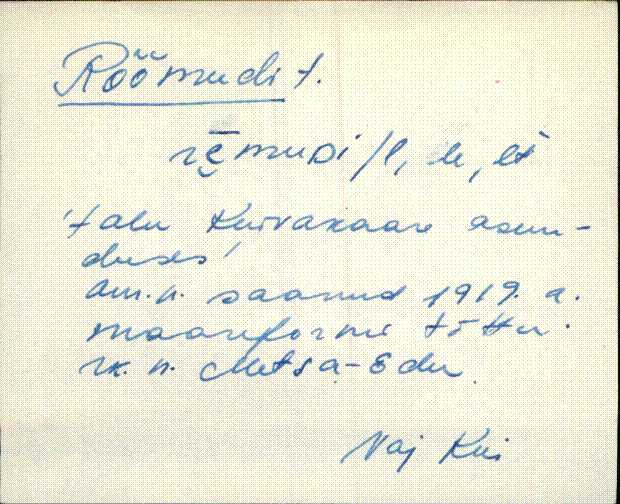 Rõõmudi t.
rę̄muDi /l, le, lt
'talu Kuivakaare asun-
duses'
am.n. saanud 1919. a.
maareformi tõttu.
rk. n. Metsa-Edu
Vaj Kui